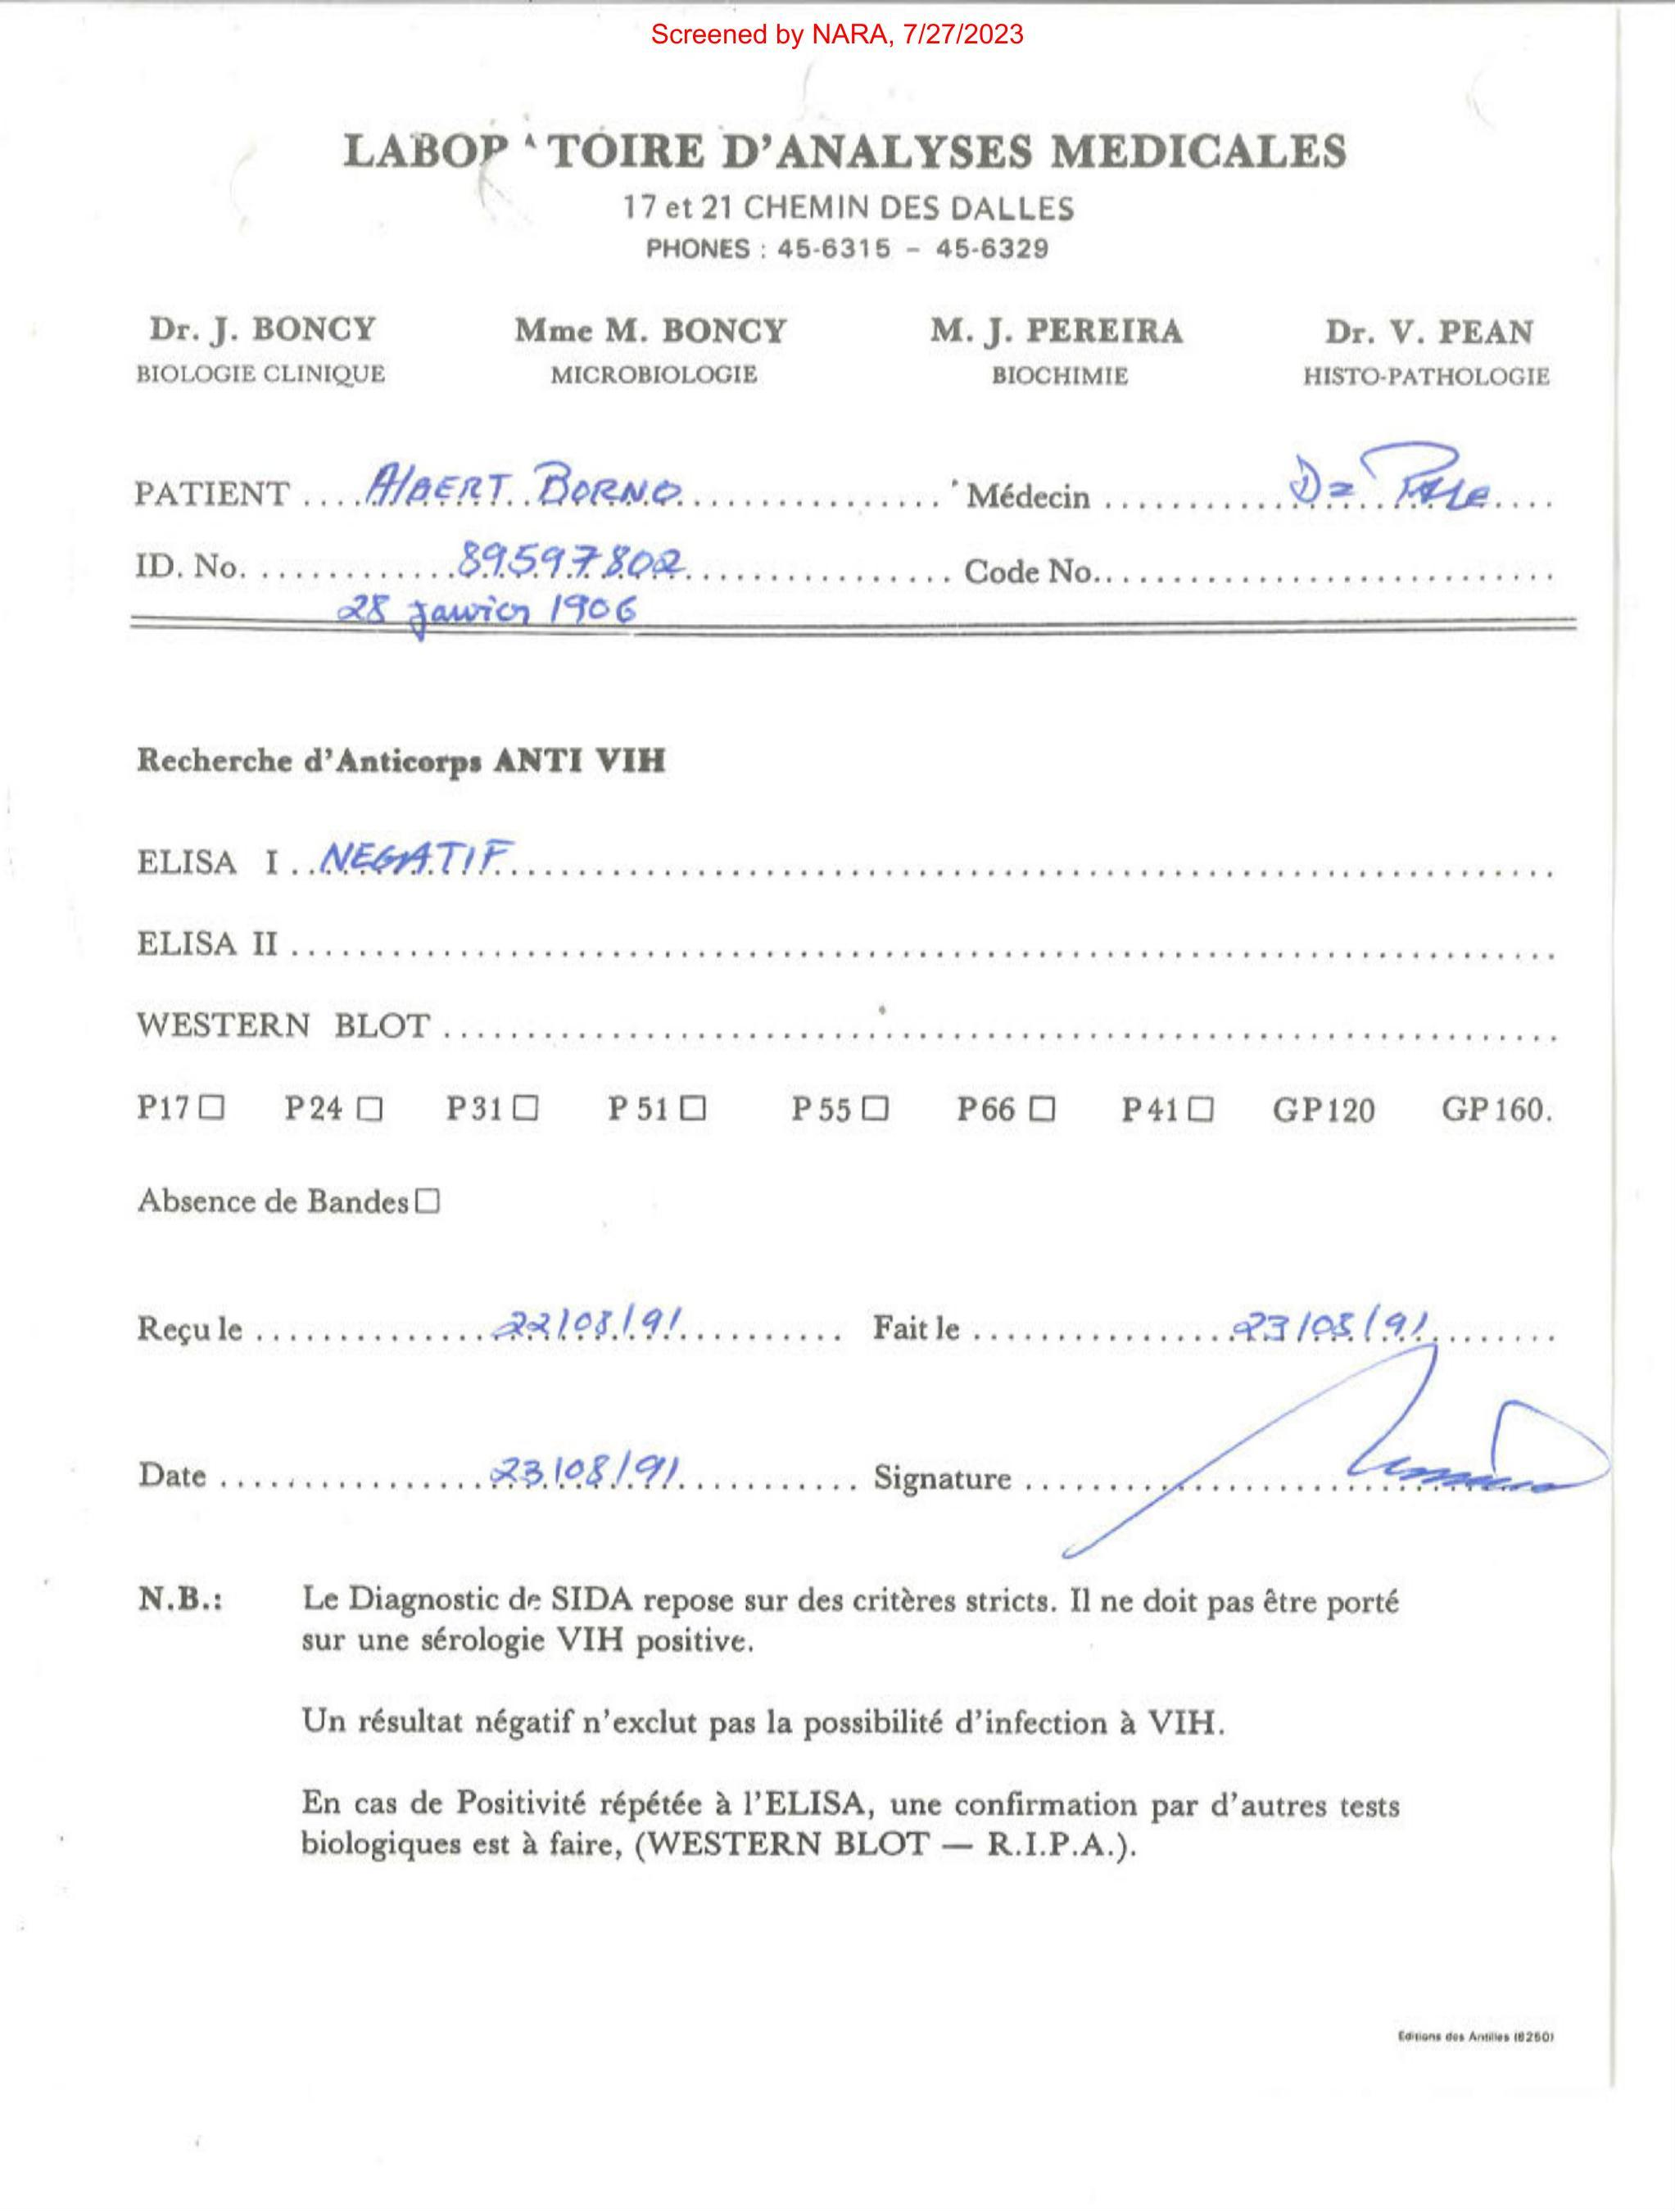 Screened by NARA, 7/27/2023
LABORATOIRE D'ANALYSES MEDICALES
17 et 21 CHEMIN DES DALLES
PHONES : 45-6315 – 45-6329
Dr. J. BONCY Mme M. BONCY M. J. PEREIRA Dr. V. PEAN
BIOLOGIE CLINIQUE MICROBIOLOGIE BIOCHIMIE HISTO-PATHOLOGIE
PATIENT .... ALBERT BORNO ............... Médecin ..........
ID. No. ............ 89597802 ............... Code No. ..........................
28 janvier 1906
Recherche d'Anticorps ANTI VIH
ELISA I .. NEGATIF ..........
ELISA II ..........
WESTERN BLOT ..........
P17 □ P24 □ P31 □ P51 □ P55 □ P66 □ P41 □ GP120 GP160.
Absence de Bandes □
Reçu le .......... 22/08/91 .......... Fait le .......... 23/08/91 ..........
Date .......... 23/08/91 .......... Signature ..........
N.B.: Le Diagnostic de SIDA repose sur des critères stricts. Il ne doit pas être porté
sur une sérologie VIH positive.
Un résultat négatif n'exclut pas la possibilité d'infection à VIH.
En cas de Positivité répétée à l'ELISA, une confirmation par d'autres tests
biologiques est à faire, (WESTERN BLOT — R.I.P.A.).
Editions des Antilles (6250)